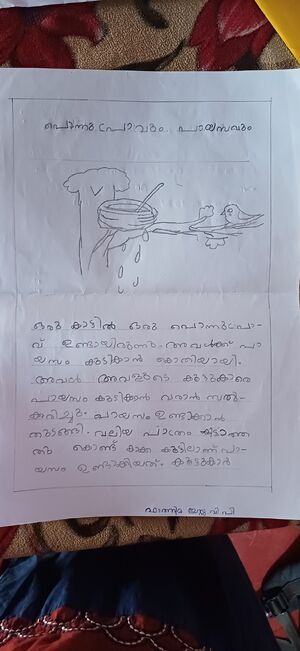 പൊന്നു പ്രാവും പായസവും
ഒരു കാട്ടിൽ ഒരു പൊന്നുപ്രാ-
വ് ഉണ്ടായിരുന്നു. അവൾക്ക് പാ
യസം കുടിക്കാൻ കൊതിയായി.
അവൾ അവളുടെ കൂട്ടുകാരെ
പായസം കുടിക്കാൻ വരാൻ
പായസം ഉണ്ടാക്കാൻ
തുടങ്ങി. വലിയ പാത്രം
കൊണ്ട് കാക്ക കൂട്ടിലാണ് പാ-
യസം ഉണ്ടാക്കിയത്. കൂട്ടുകാർ
ഫാത്തിമ വി.പി